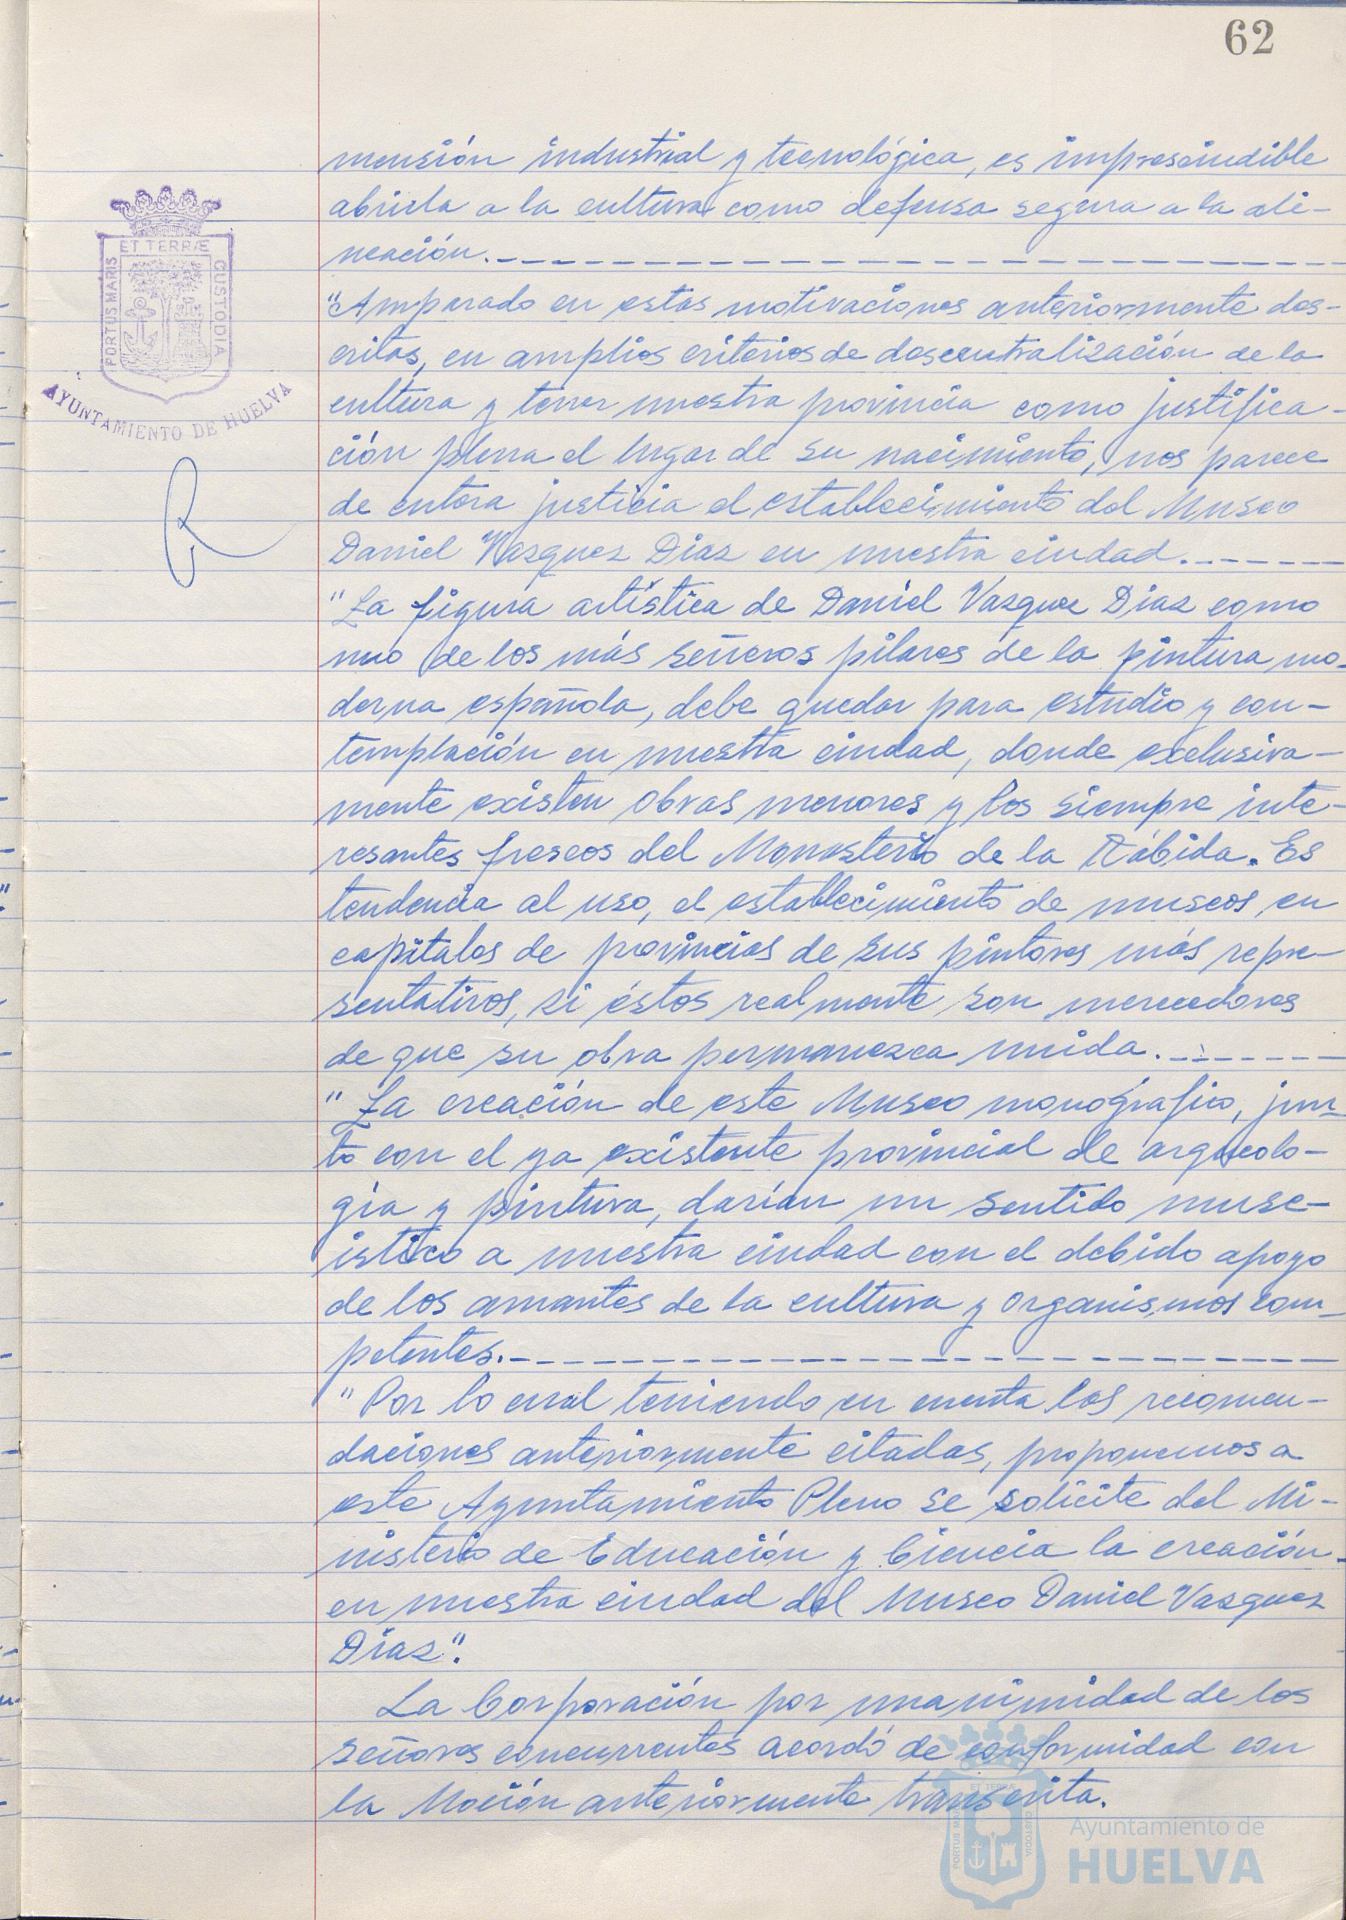 62
mensión industrial y tecnológica, es imprescindible
abrirla a la cultura como defensa segura a la ali-
neación.
"Amparado en estas motivaciones anteriormente des-
critas, en amplios criterios de descentralización de la
cultura y tener nuestra provincia como justifica-
ción plena el lugar de su nacimiento, nos parece
de entera justicia el establecimiento del Museo
Daniel Vazquez Diaz en nuestra ciudad.
"La figura artística de Daniel Vazquez Diaz como
uno de los más señeros pilares de la pintura mo-
derna española, debe quedar para estudio y con-
templación en nuestra ciudad, donde exclusiva-
mente existen obras menores y los siempre inte-
resantes frescos del Monasterio de la Rábida. Es
tendencia al uso, el establecimiento de museos, en
capitales de provincias de sus pintores más repre-
sentativos, si éstos realmente son merecedores
de que su obra permanezca unida.
"La creación de este Museo monográfico, jun-
to con el ya existente provincial de arqueolo-
gía y pintura, darían un sentido muse-
ístico a nuestra ciudad con el debido apoyo
de los amantes de la cultura y organismos com-
petentes.
"Por lo cual teniendo en cuenta las recomen-
daciones anteriormente citadas, proponemos a
este Ayuntamiento Pleno se solicite del Mi-
nisterio de Educación y Ciencia la creación
en nuestra ciudad del Museo Daniel Vazquez
Diaz".
La Corporación por unanimidad de los
señores concurrentes acordó de conformidad con
la Moción anteriormente transcrita.
PORTUS MARIS ET TERRÆ CUSTODIA
AYUNTAMIENTO DE HUELVA
PORTUS MARIS ET TERRÆ CUSTODIA
Ayuntamiento de
HUELVA